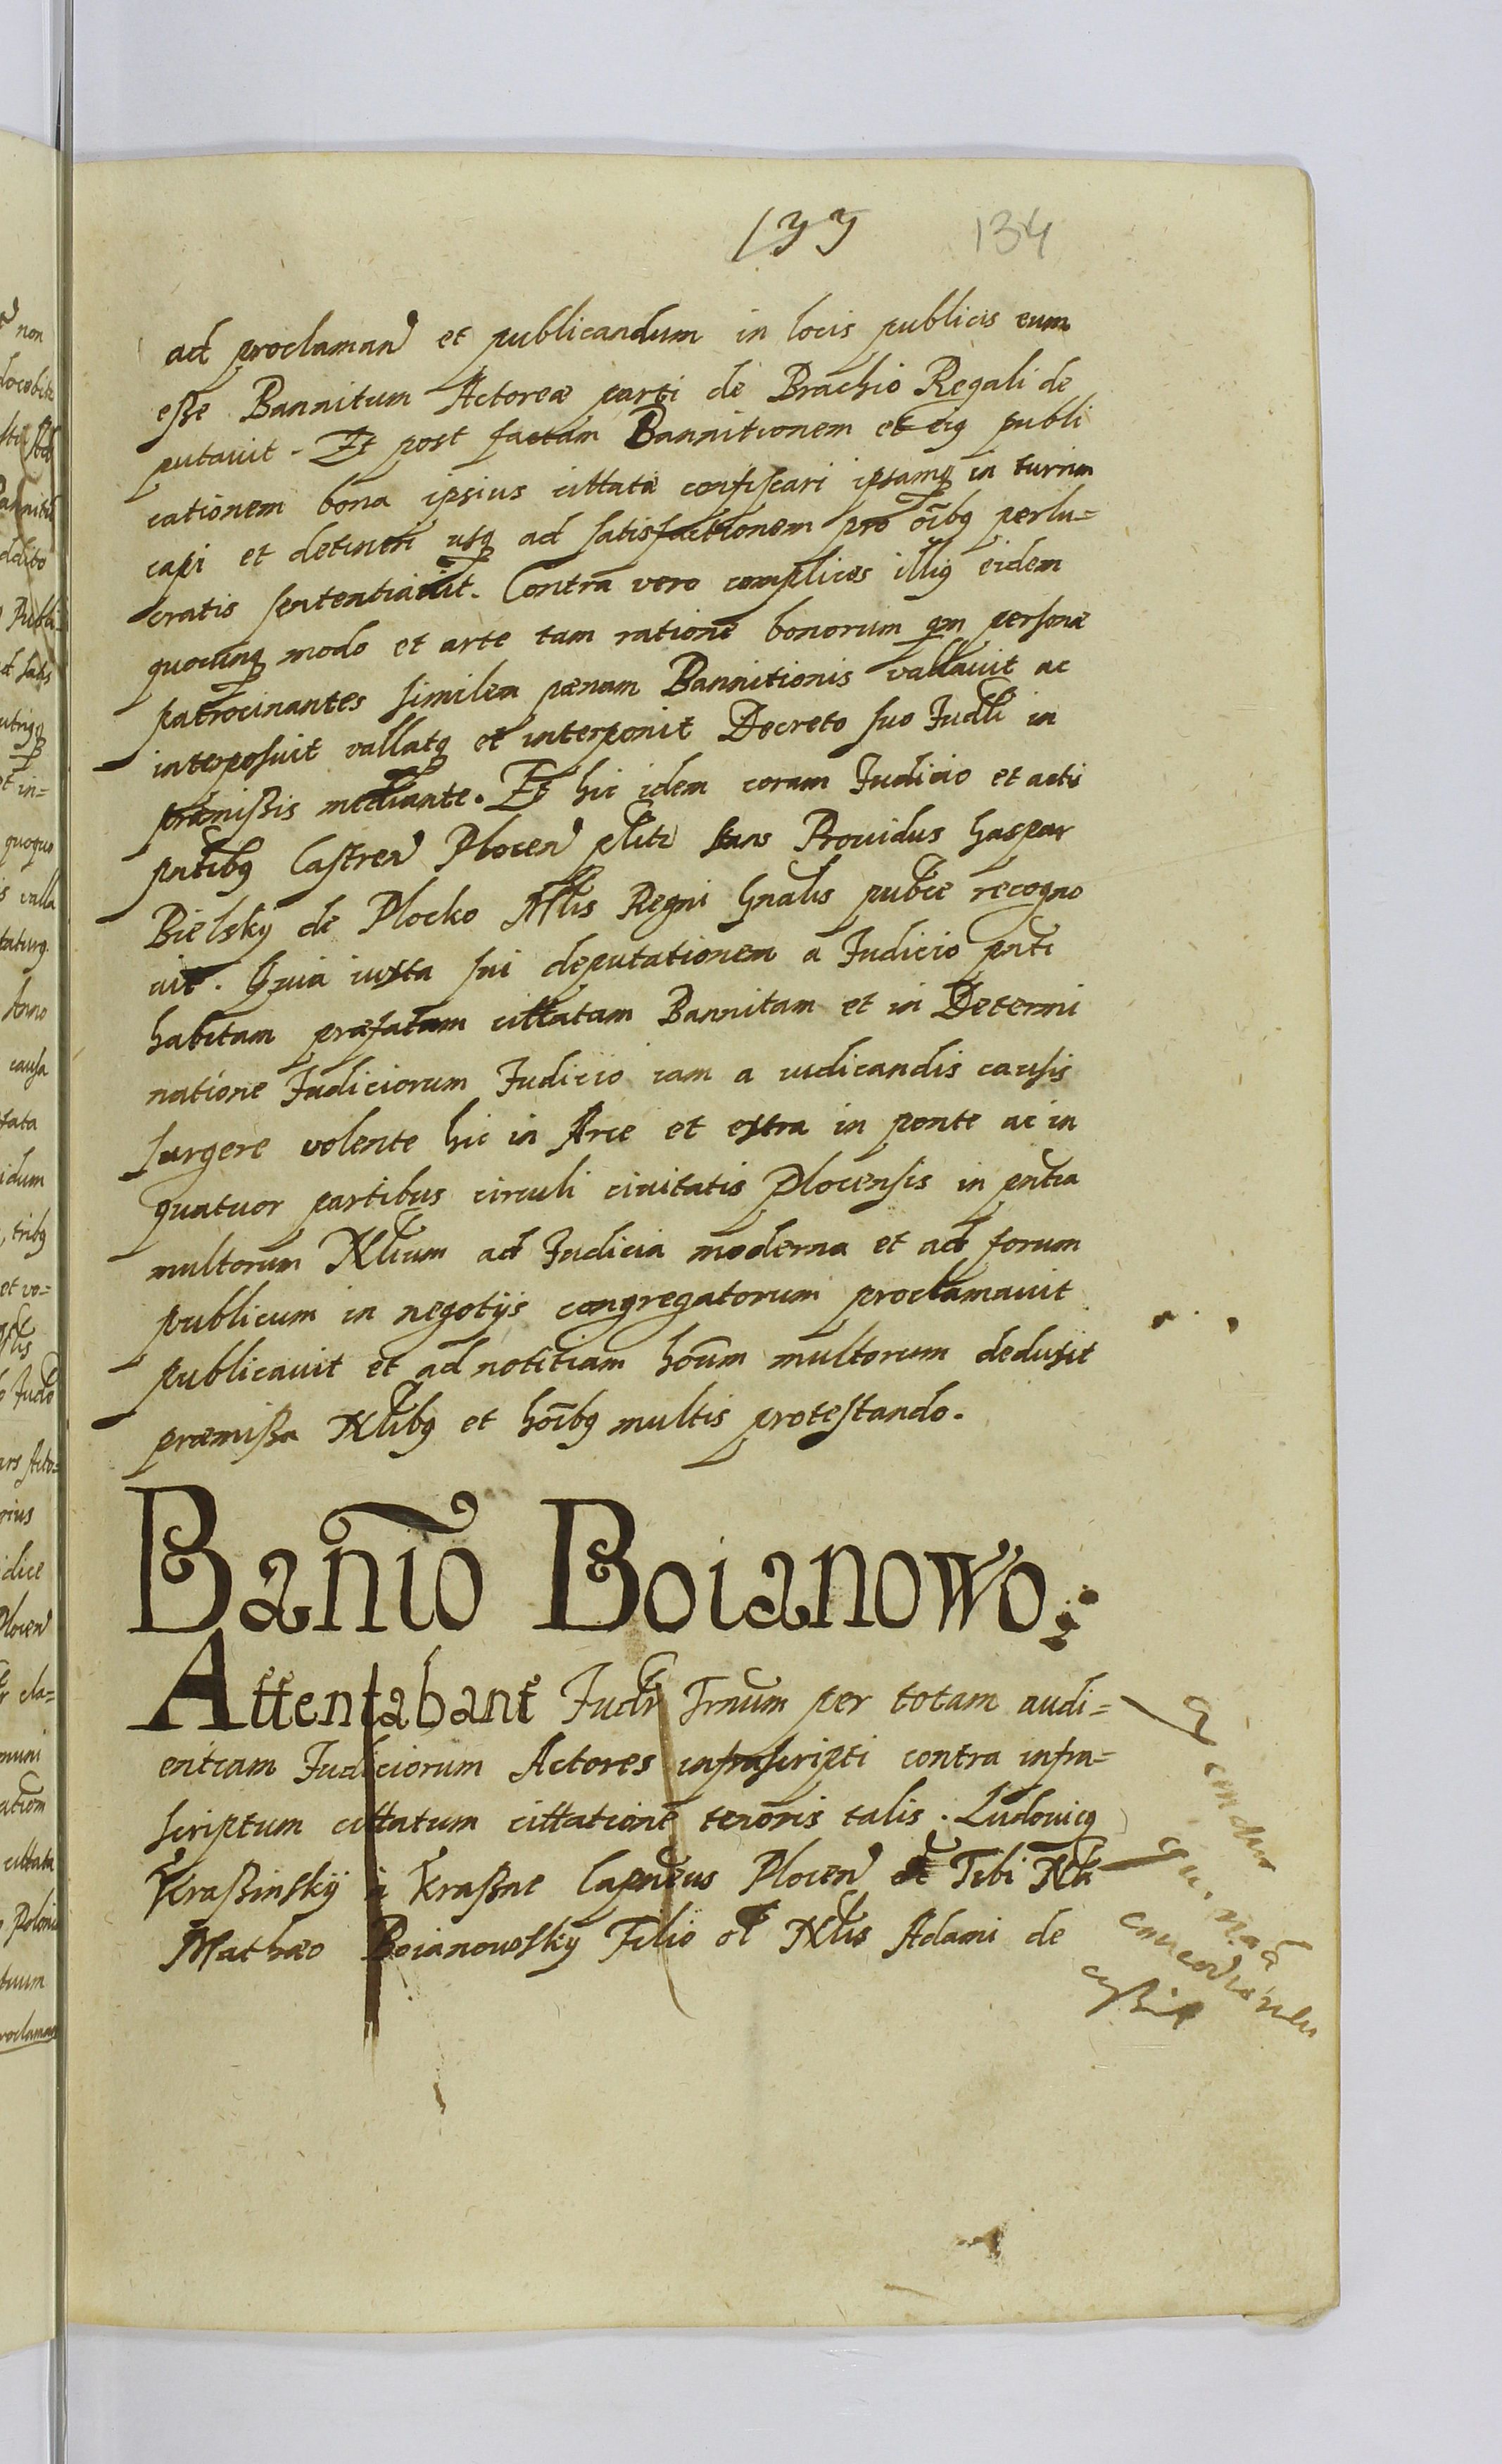 133 134
ad proclamand et publicandum in locis publicis eum
eße Bannitum Actoreæ parti de Brachio Regali de
putauit. Et post factam Bannitionem et eiq publi
cationem bona ipsius cittatæ confiscari ipsamq in turrim
capi et detineri usq ad satisfactionem pro oibq perlu=
cratis sententiauit. Contra vero complices illiq eidem
quocunq modo et arte tam ratione bonorum qm personæ
patrocinantes similem pænam Bannitionis vallauit ac
interposuit vallatq et interponit Decreto suo Judli in
præmißis mediante. Et hic idem coram Judicio et actis
pntibq Castren Plocen plitr stans Prouidus Gaspar
Bielsky de Plocko Mlis Regni Gnalis publce recogno
uit. Quia iuxta sui deputationem a Judicio pnti
habitam præfatam cittatam Bannitam et in Determi
natione Judiciorum Judicio iam a iudicandis causis
surgere volente hic in Arce et extra in ponte ac in
quatuor partibus circuli ciuitatis Plocensis in pntia
multorum Nlium ad Judicia moderna et ad forum
publicum in negotijs congregatorum proclamauit
publicauit et ad notitiam hoium multorum deduxit
præmißa Nlibq et hoibq multis protestando.
Banio Boianowo.
Attentabant Judr Trnum per totam audi=
entiam Judiciorum Actores infrascripti contra infra=
scriptum cittatum cittatione tenoris talis. Ludouicq
Kraßinskij à Kraßne Capneus Plocen Tibi Nli
Mathæo Boianowsky Filio ol Nlis Adami de